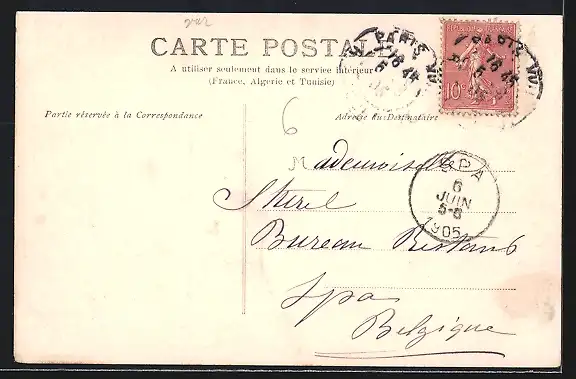 CARTE POSTALE
A utiliser seulement dans le service intérieur
(France, Algérie et Tunisie)
Partie réservée à la Correspondance
Adresse du Destinataire
PARIS
18 45
PARIS
18 45
10c
6
Mademoiselle
SPA
6
JUIN
5-6
1905
Bureau Restant
Spa
Belgique